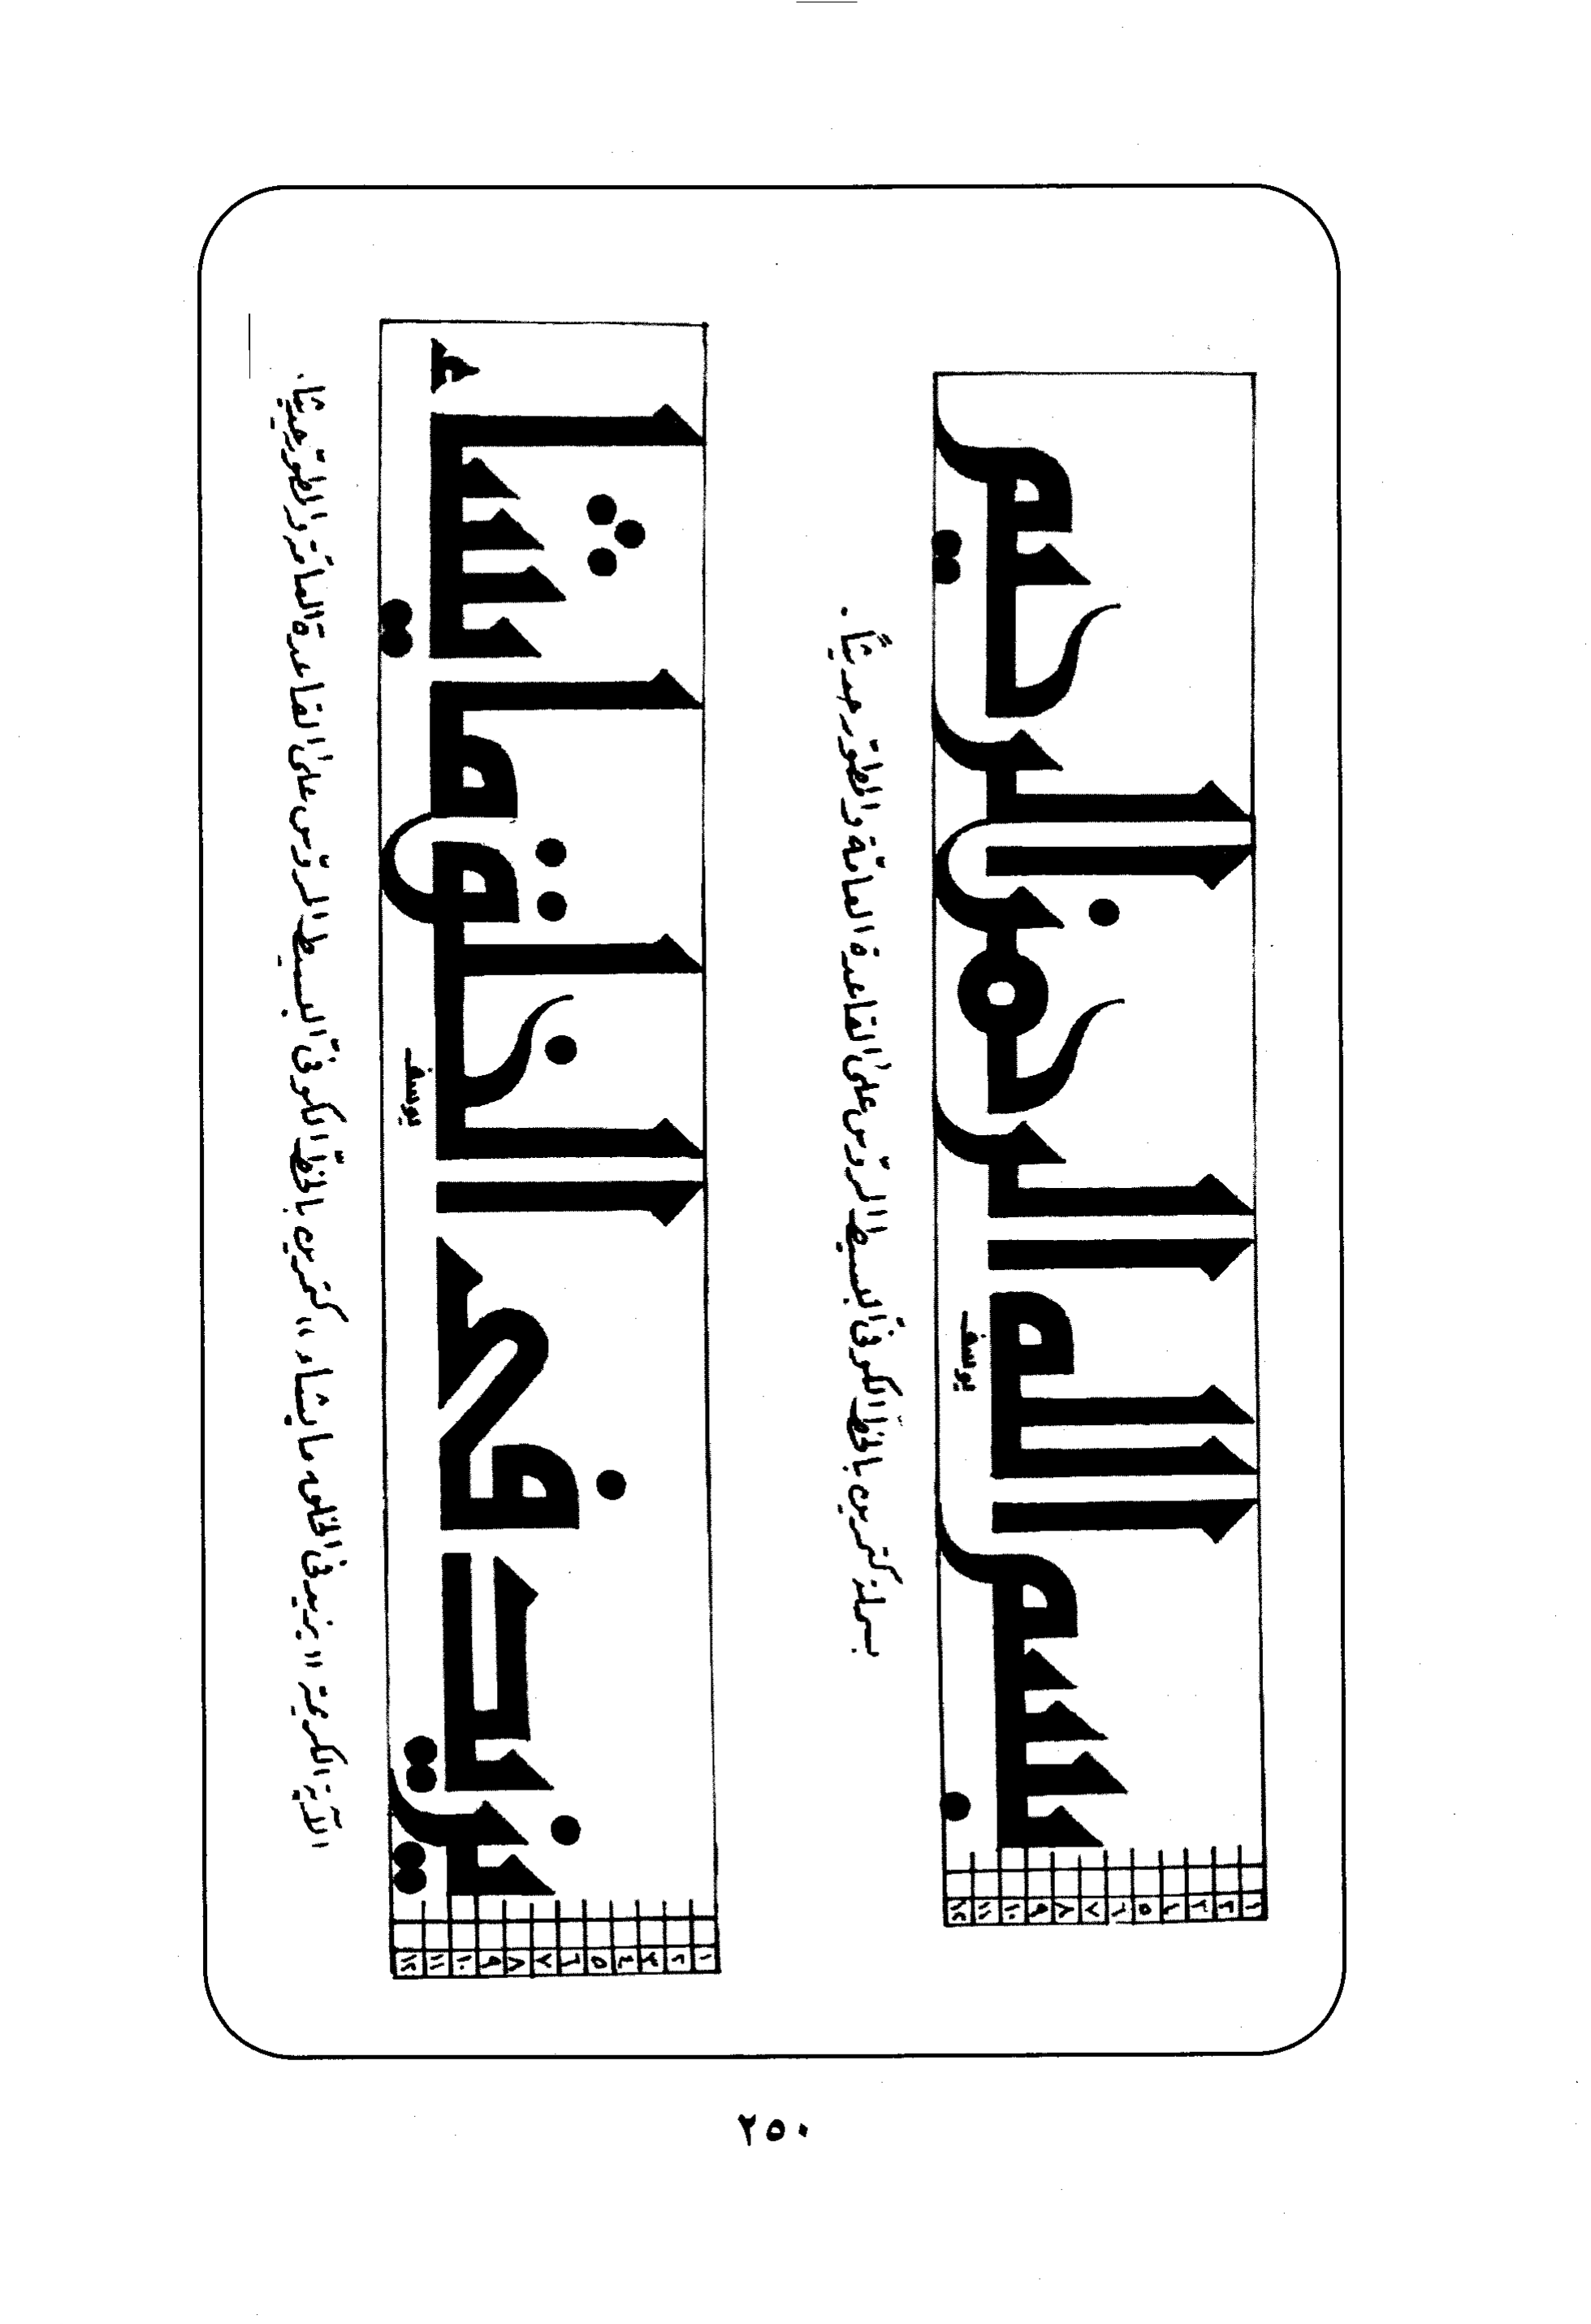 بسم الله الرحمن الرحيم
يوسف
١ ٢ ٣ ٤ ٥ ٦ ٧ ٨ ٩ ١٠ ١١ ١٢
بسملة كتبت بالخط الكوفي البسيط المروّس على القاعدة العامة والمطوّر حديثاً.
يزيد في الخلق ما يشاء
يوسف
١ ٢ ٣ ٤ ٥ ٦ ٧ ٨ ٩ ١٠ ١١ ١٢
الآية الكريمة "يزيد في الخلق ما يشاء" كتبت بالخط الكوفي البسيط المروّس على القاعدة العامة والمطور حديثاً.
٢٥٠